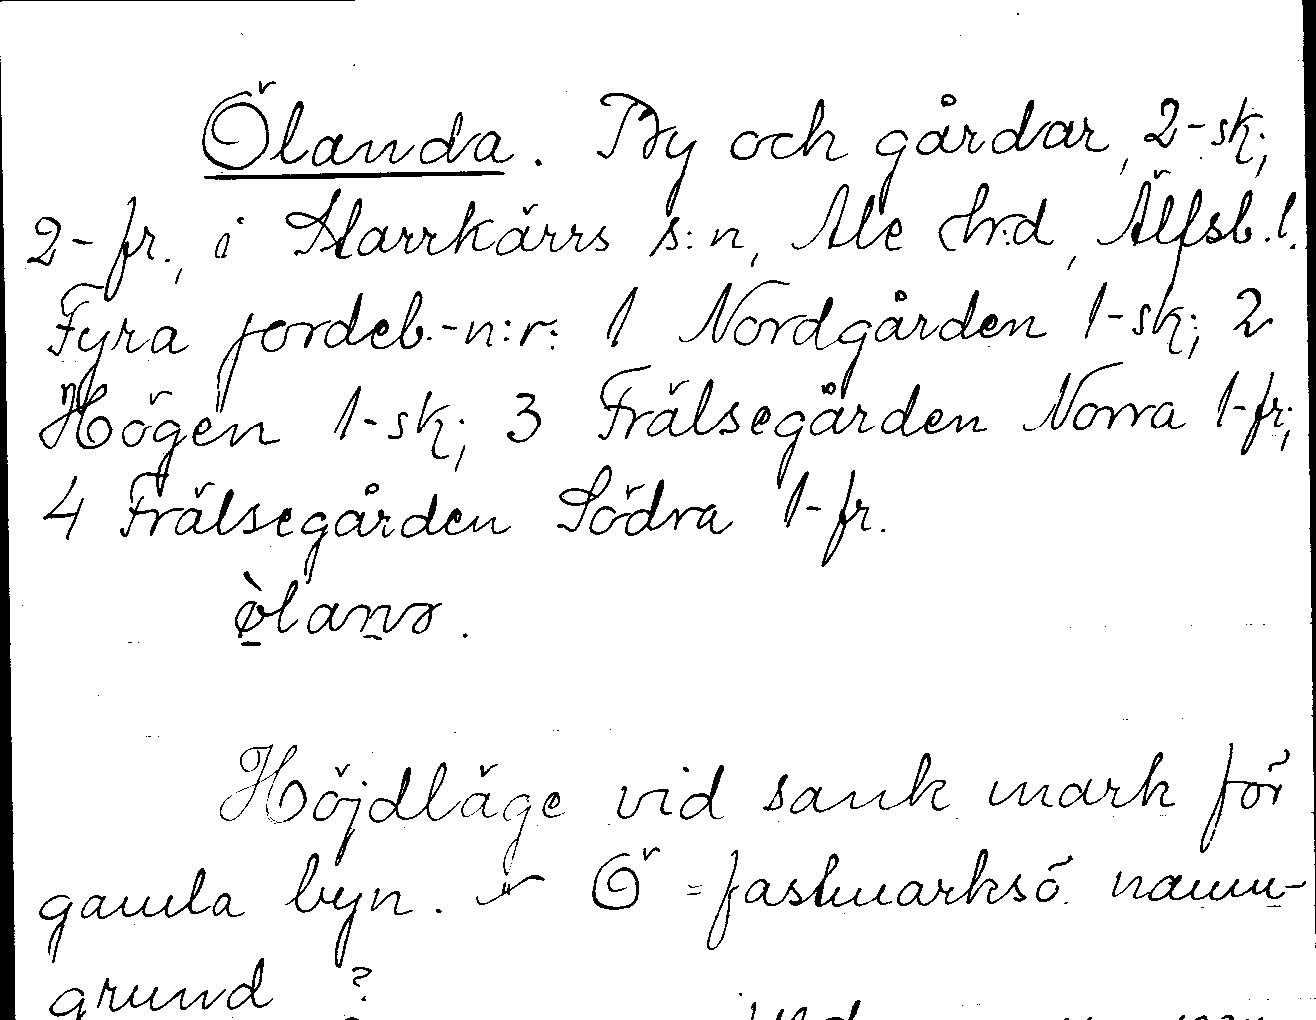 Ölanda. By och gårdar, 2-sk;
2-fr., i Starrkärrs s:n, Ale hrd, Älfsb. l.
Fyra jordeb.-n:r: 1 Nordgården 1-sk; 2
Högen 1-sk; 3 Frälsegården Norra 1-fr;
4 Frälsegården Södra 1-fr.
ø̀lanə.
Höjdläge vid sank mark för
gamla byn. Ö = fastmarksö. namn-
grund ?